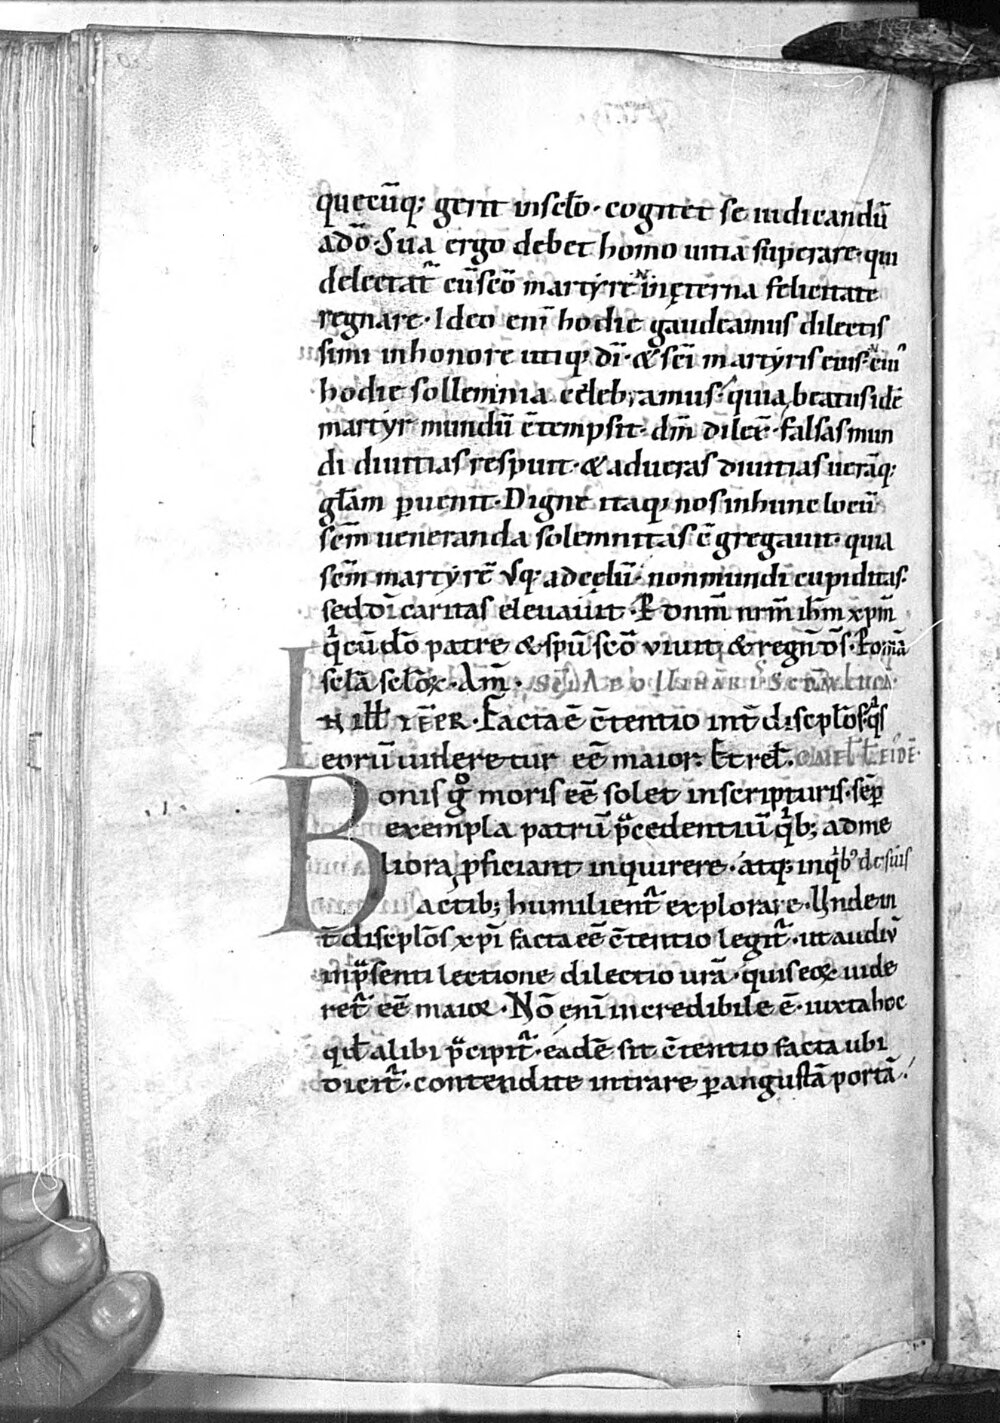 quecūq; gerit insclō· cognoscet se iudicandū
adō· Sua ergo debet homo uitia superare· qui
delectat̃ cū scō martyre inęterna felicitate
regnare· Ideo eni hodie gaudeamus dilectis
simi inhonore utiq; dī· & scī martyris eius· cui᾽
hodie sollemnia celebramus· quia beatus idē
martyr mundū c̄tempsit· dm̄ dilex̄· falsas mun
di diuitias respuit· & aduęras diuitias uerāq;
gl̄am puenit· Digne itaq; nos inhunc locū
scm̄ ueneranda solemnitas c̄gregauit· quia
scm̄ martyrē usq; adcęlū· non mundi cupiditas·
sed dī caritas eleuauit· P dnm̄ nrm̄ ihm̄ xpm̄
q̇ cū dō patre & spū scō uiuit & regn̄ d̄s· P om̄a
sclā sclōꝝ· Am̄·
IN ill̄ TĒR· Facta ē c̄tentio int̄ discplōs· q̇s
eorū uideretur eē maior· Et rel̄·
Bonis g̊ moris eē solet inscripturis· sēp
exempla patrū p̄cedentiū q̇b; adme
liora pficiant inquirere· atq; inq̇b᾽ desuis
actib; humilient̃ explorare· Unde in
t̄ discplōs xpī facta eē c̄tentio legit̃· ut audiv̄
inp̄senti lectione dilectio urā· quis eoꝝ uide
ret̃ eē maior· Nō eni incredibile ē· iuxta hoc
qd̄ alibi p̄cipit̃· eadē sit c̄tentio facta ubi
dicit̃· contendite intrare p angustā portā·